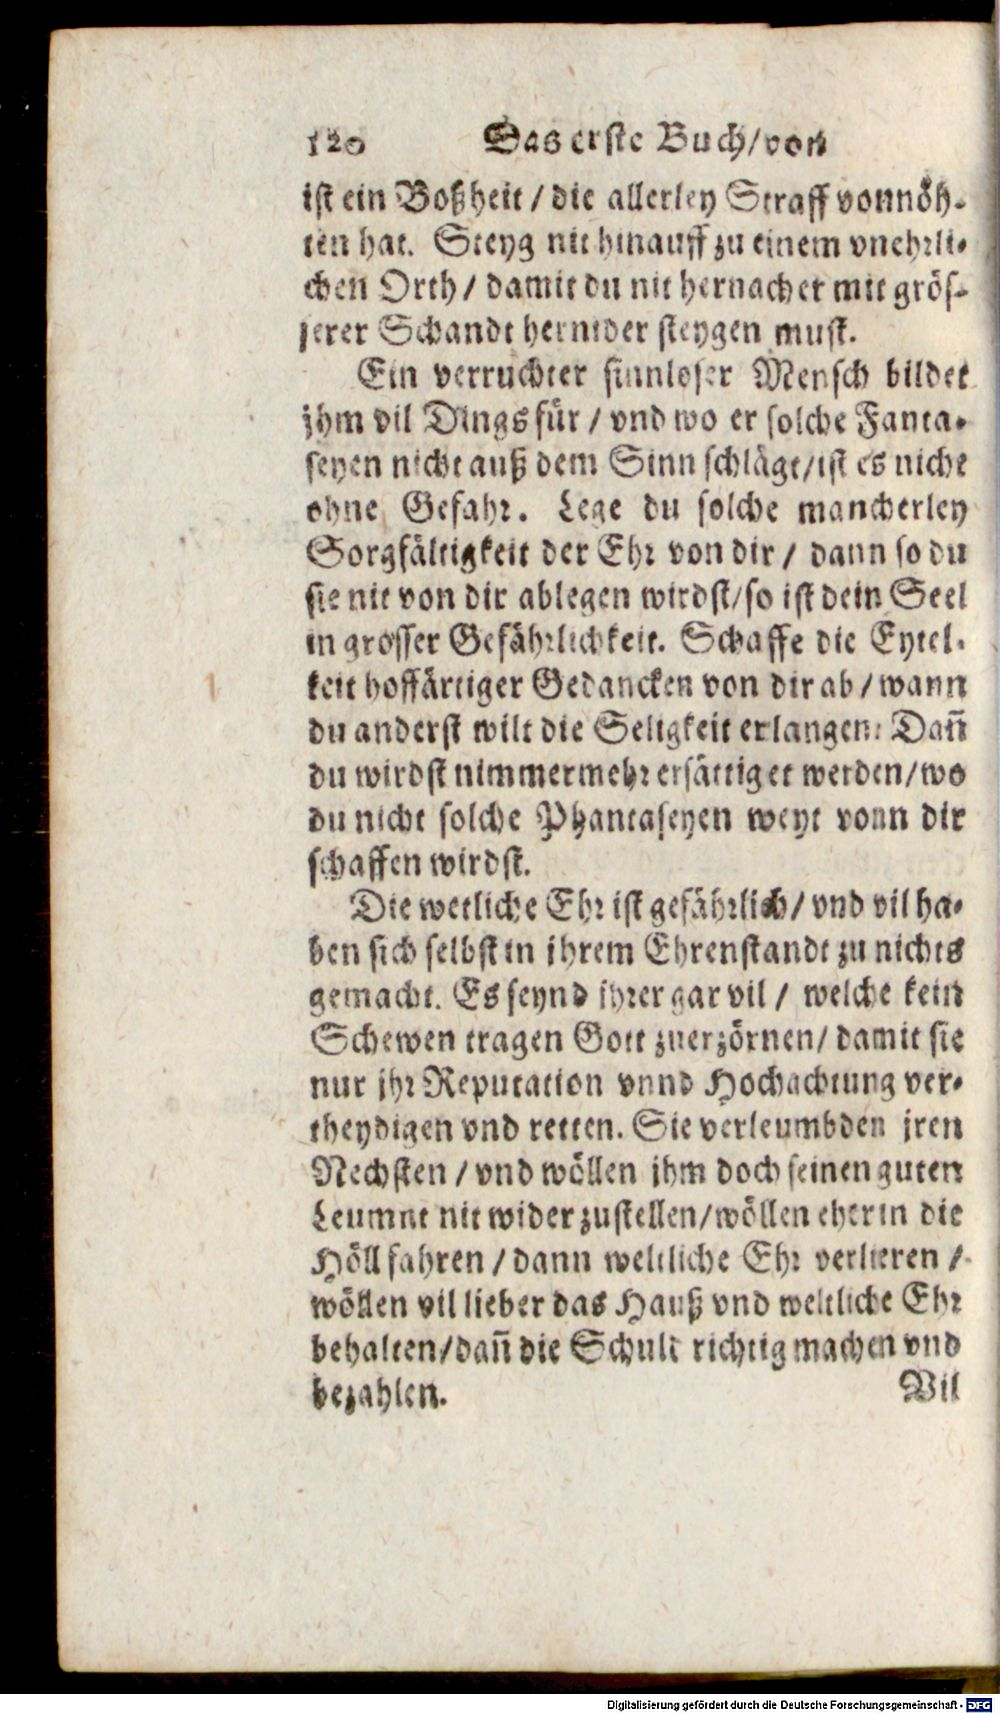 120 Das erste Buch/von
ist ein Boßheit / die allerley Straff vonnöh-
ten hat. Steyg nit hinauff zu einem vnehrli-
chen Orth / damit du nit hernacher mit grös-
serer Schandt hernider steygen must.
Ein verruchter sinnloser Mensch bildet
jhm vil Dings für / vnd wo er solche Fanta-
seyen nicht auß dem Sinn schlägt/ist es nicht
ohne Gefahr. Lege du solche mancherley
Sorgfältigkeit der Ehr von dir / dann so du
sie nit von dir ablegen wirdst/so ist dein Seel
in grosser Gefährlichkeit. Schaffe die Eytel-
keit hoffärtiger Gedancken von dir ab / wann
du anderst wilt die Seligkeit erlangen: Dañ
du wirdst nimmermehr ersättiget werden/wo
du nicht solche Phantaseyen weyt vonn dir
schaffen wirdst.
Die wetliche Ehr ist gefährlich/ vnd vil ha-
ben sich selbst in jhrem Ehrenstandt zu nichts
gemacht. Es seynd jhrer gar vil / welche kein
Schewen tragen Gott zuerzörnen/ damit sie
nur jhr Reputation vnnd Hochachtung ver-
theydigen vnd retten. Sie verleumbden jren
Nechsten / vnd wöllen jhm doch seinen guten
Leumnt nit wider zustellen/wöllen eher in die
Höll fahren / dann weltliche Ehr verlieren /
wöllen vil lieber das Hauß vnd weltliche Ehr
behalten/dañ die Schuld richtig machen vnd
bezahlen. Vil
Digitalisierung gefördert durch die Deutsche Forschungsgemeinschaft - DFG